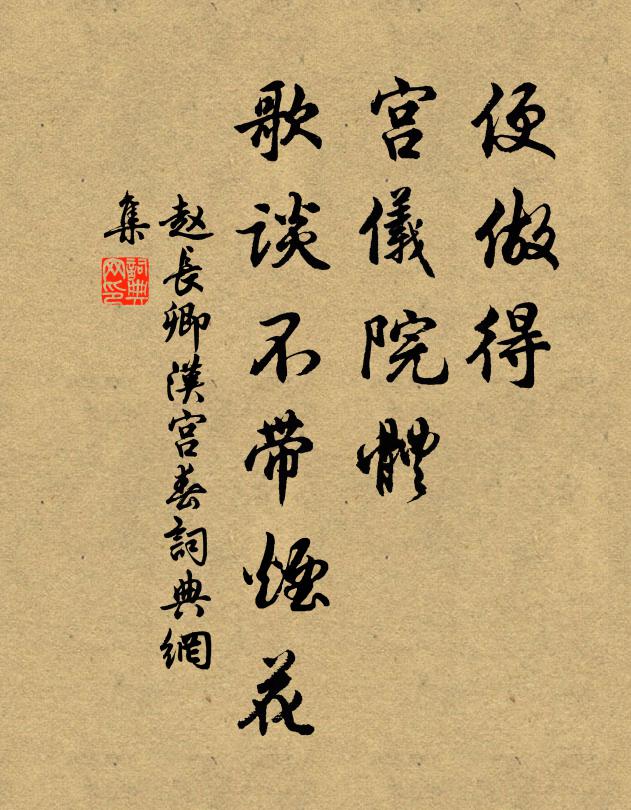 便做得
宫儀院體
歌談不带煙花
赵長卿漢宫春詞典網
集
詞典
网印